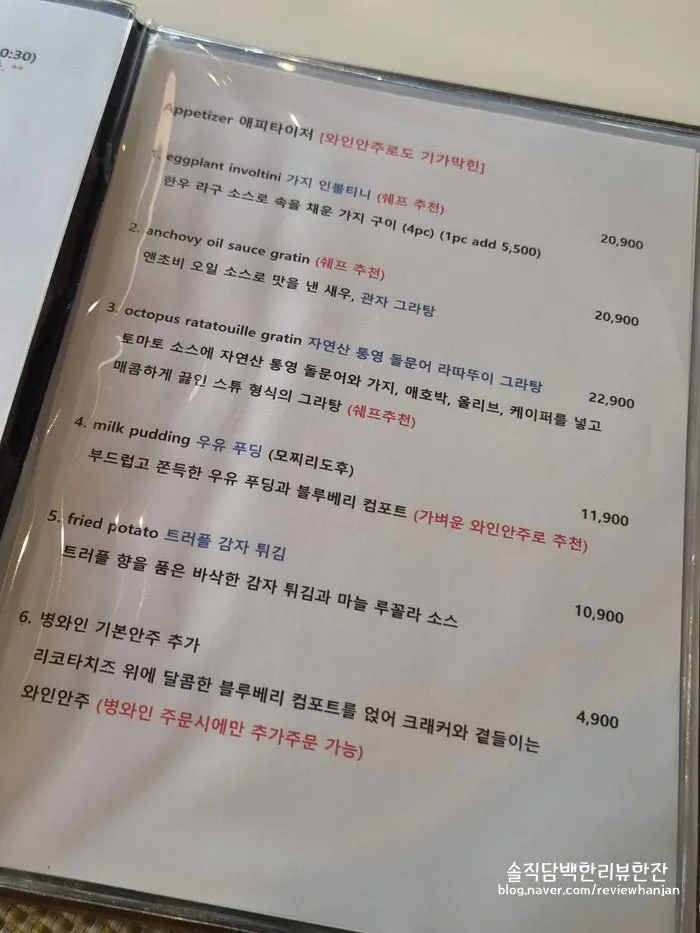 0:30)
**
Appetizer 애피타이저 [와인안주로도 기가막힌]
1. eggplant involtini 가지 인볼티니 (쉐프 추천)
한우 라구 소스로 속을 채운 가지 구이 (4pc) (1pc add 5,500)
20,900
2. anchovy oil sauce gratin (쉐프 추천)
앤초비 오일 소스로 맛을 낸 새우, 관자 그라탕
20,900
3. octopus ratatouille gratin 자연산 통영 돌문어 라따뚜이 그라탕
22,900
토마토 소스에 자연산 통영 돌문어와 가지, 애호박, 올리브, 케이퍼를 넣고
매콤하게 끓인 스튜 형식의 그라탕 (쉐프추천)
4. milk pudding 우유 푸딩 (모찌리도후)
11,900
부드럽고 쫀득한 우유 푸딩과 블루베리 컴포트 (가벼운 와인안주로 추천)
5. fried potato 트러플 감자 튀김
10,900
트러플 향을 품은 바삭한 감자 튀김과 마늘 루꼴라 소스
6. 병와인 기본안주 추가
4,900
리코타치즈 위에 달콤한 블루베리 컴포트를 얹어 크래커와 곁들이는
와인안주 (병와인 주문시에만 추가주문 가능)
솔직담백한리뷰한잔
blog.naver.com/reviewhanjan